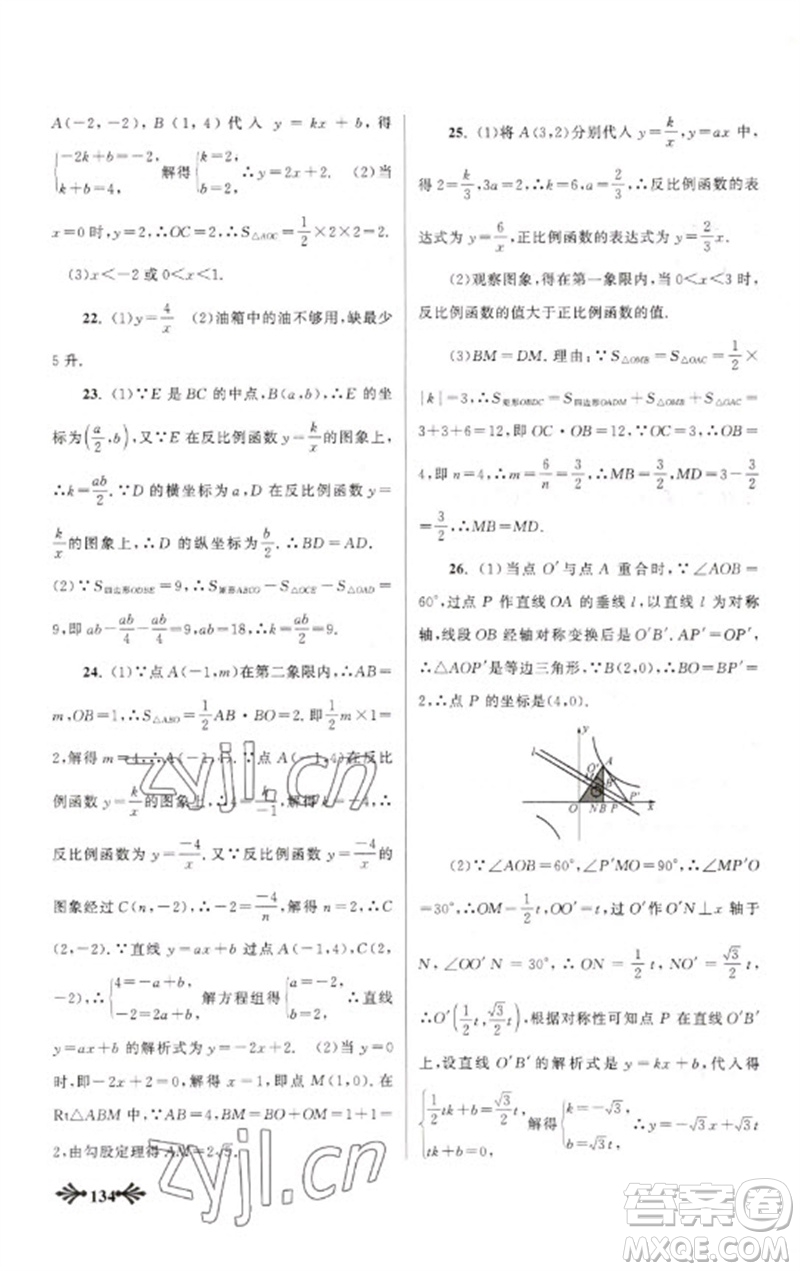 A(-2,-2),B(1,4)代入 y=kx+b,得
{-2k+b=-2, k+b=4, 解得{k=2, b=2, ∴y=2x+2. (2)当
x=0时,y=2,∴OC=2,∴S△AOC=1/2×2×2=2.
(3)x<-2或0<x<1.
22. (1)y=4/x (2)油箱中的油不够用,缺最少
5升.
23. (1)∵E是BC的中点,B(a,b),∴E的坐
标为(a/2,b),又∵E在反比例函数y=k/x的图象上,
∴k=ab/2.∵D的横坐标为a,D在反比例函数y=
k/x的图象上,∴D的纵坐标为b/2.∴BD=AD.
(2)∵S四边形ODBE=9,∴S矩形ABCO-S△OCE-S△OAD=
9,即ab-ab/4-ab/4=9,∴ab=18,∴k=ab/2=9.
24. (1)∵点A(-1,m)在第二象限内,∴AB=
m,OB=1,∴S△ABO=1/2AB·BO=2.即1/2m×1=
2,解得m=4,∴A(-1,4).∵点A(-1,4)在反比
例函数y=k/x的图象上,∴4=k/-1,解得k=-4.∴
反比例函数为y=-4/x.又∵反比例函数y=-4/x的
图象经过C(n,-2),∴-2=-4/n,解得n=2,∴C
(2,-2).∵直线y=ax+b过点A(-1,4),C(2,
-2),∴{4=-a+b, -2=2a+b, 解方程组得{a=-2, b=2, ∴直线
y=ax+b的解析式为y=-2x+2. (2)当y=0
时,即-2x+2=0,解得x=1,即点M(1,0).在
Rt△ABM中,∵AB=4,BM=BO+OM=1+1=
2,由勾股定理得AM=2√5.
134
25. (1)将A(3,2)分别代入y=k/x,y=ax中,
得2=k/3,3a=2,∴k=6,a=2/3,∴反比例函数的表
达式为y=6/x,正比例函数的表达式为y=2/3x.
(2)观察图象,得在第一象限内,当0<x<3时,
反比例函数的值大于正比例函数的值.
(3)BM=DM.理由:∵S△OMB=S△OAC=1/2×
|k|=3,∴S矩形OBDC=S四边形OADM+S△OMB+S△OAC=
3+3+6=12,即OC·OB=12,∵OC=3,∴OB=
4,即n=4,∴m=6/n=3/2,∴MB=3/2,MD=3-3/2=
3/2,∴MB=MD.
26. (1)当点O'与点A重合时,∵∠AOB=
60°,过点P作直线OA的垂线l,以直线l为对称
轴,线段OB经轴对变换后是O'B'.AP'=OP',
∴△AOP'是等边三角形,∵B(2,0),∴BO=BP'=
2,∴点P的坐标是(4,0).
y
l
O' A
M
B'
O N B P P' x
(2)∵∠AOB=60°,∠P'MO=90°,∴∠MP'O
=30°,∴OM=1/2t,OO'=t,过O'作O'N⊥x轴于
N,∠OO'N=30°,∴ON=1/2t,NO'=√3/2t,
∴O'(1/2t,√3/2t),根据对称性可知点P在直线O'B'
上,设直线O'B'的解析式是y=kx+b,代入得
{1/2tk+b=√3/2t, tk+b=0, 解得{k=-√3, b=√3t, ∴y=-√3x+√3t
zyjl.cn
zyjl.cn
答案卷
MXQE.COM